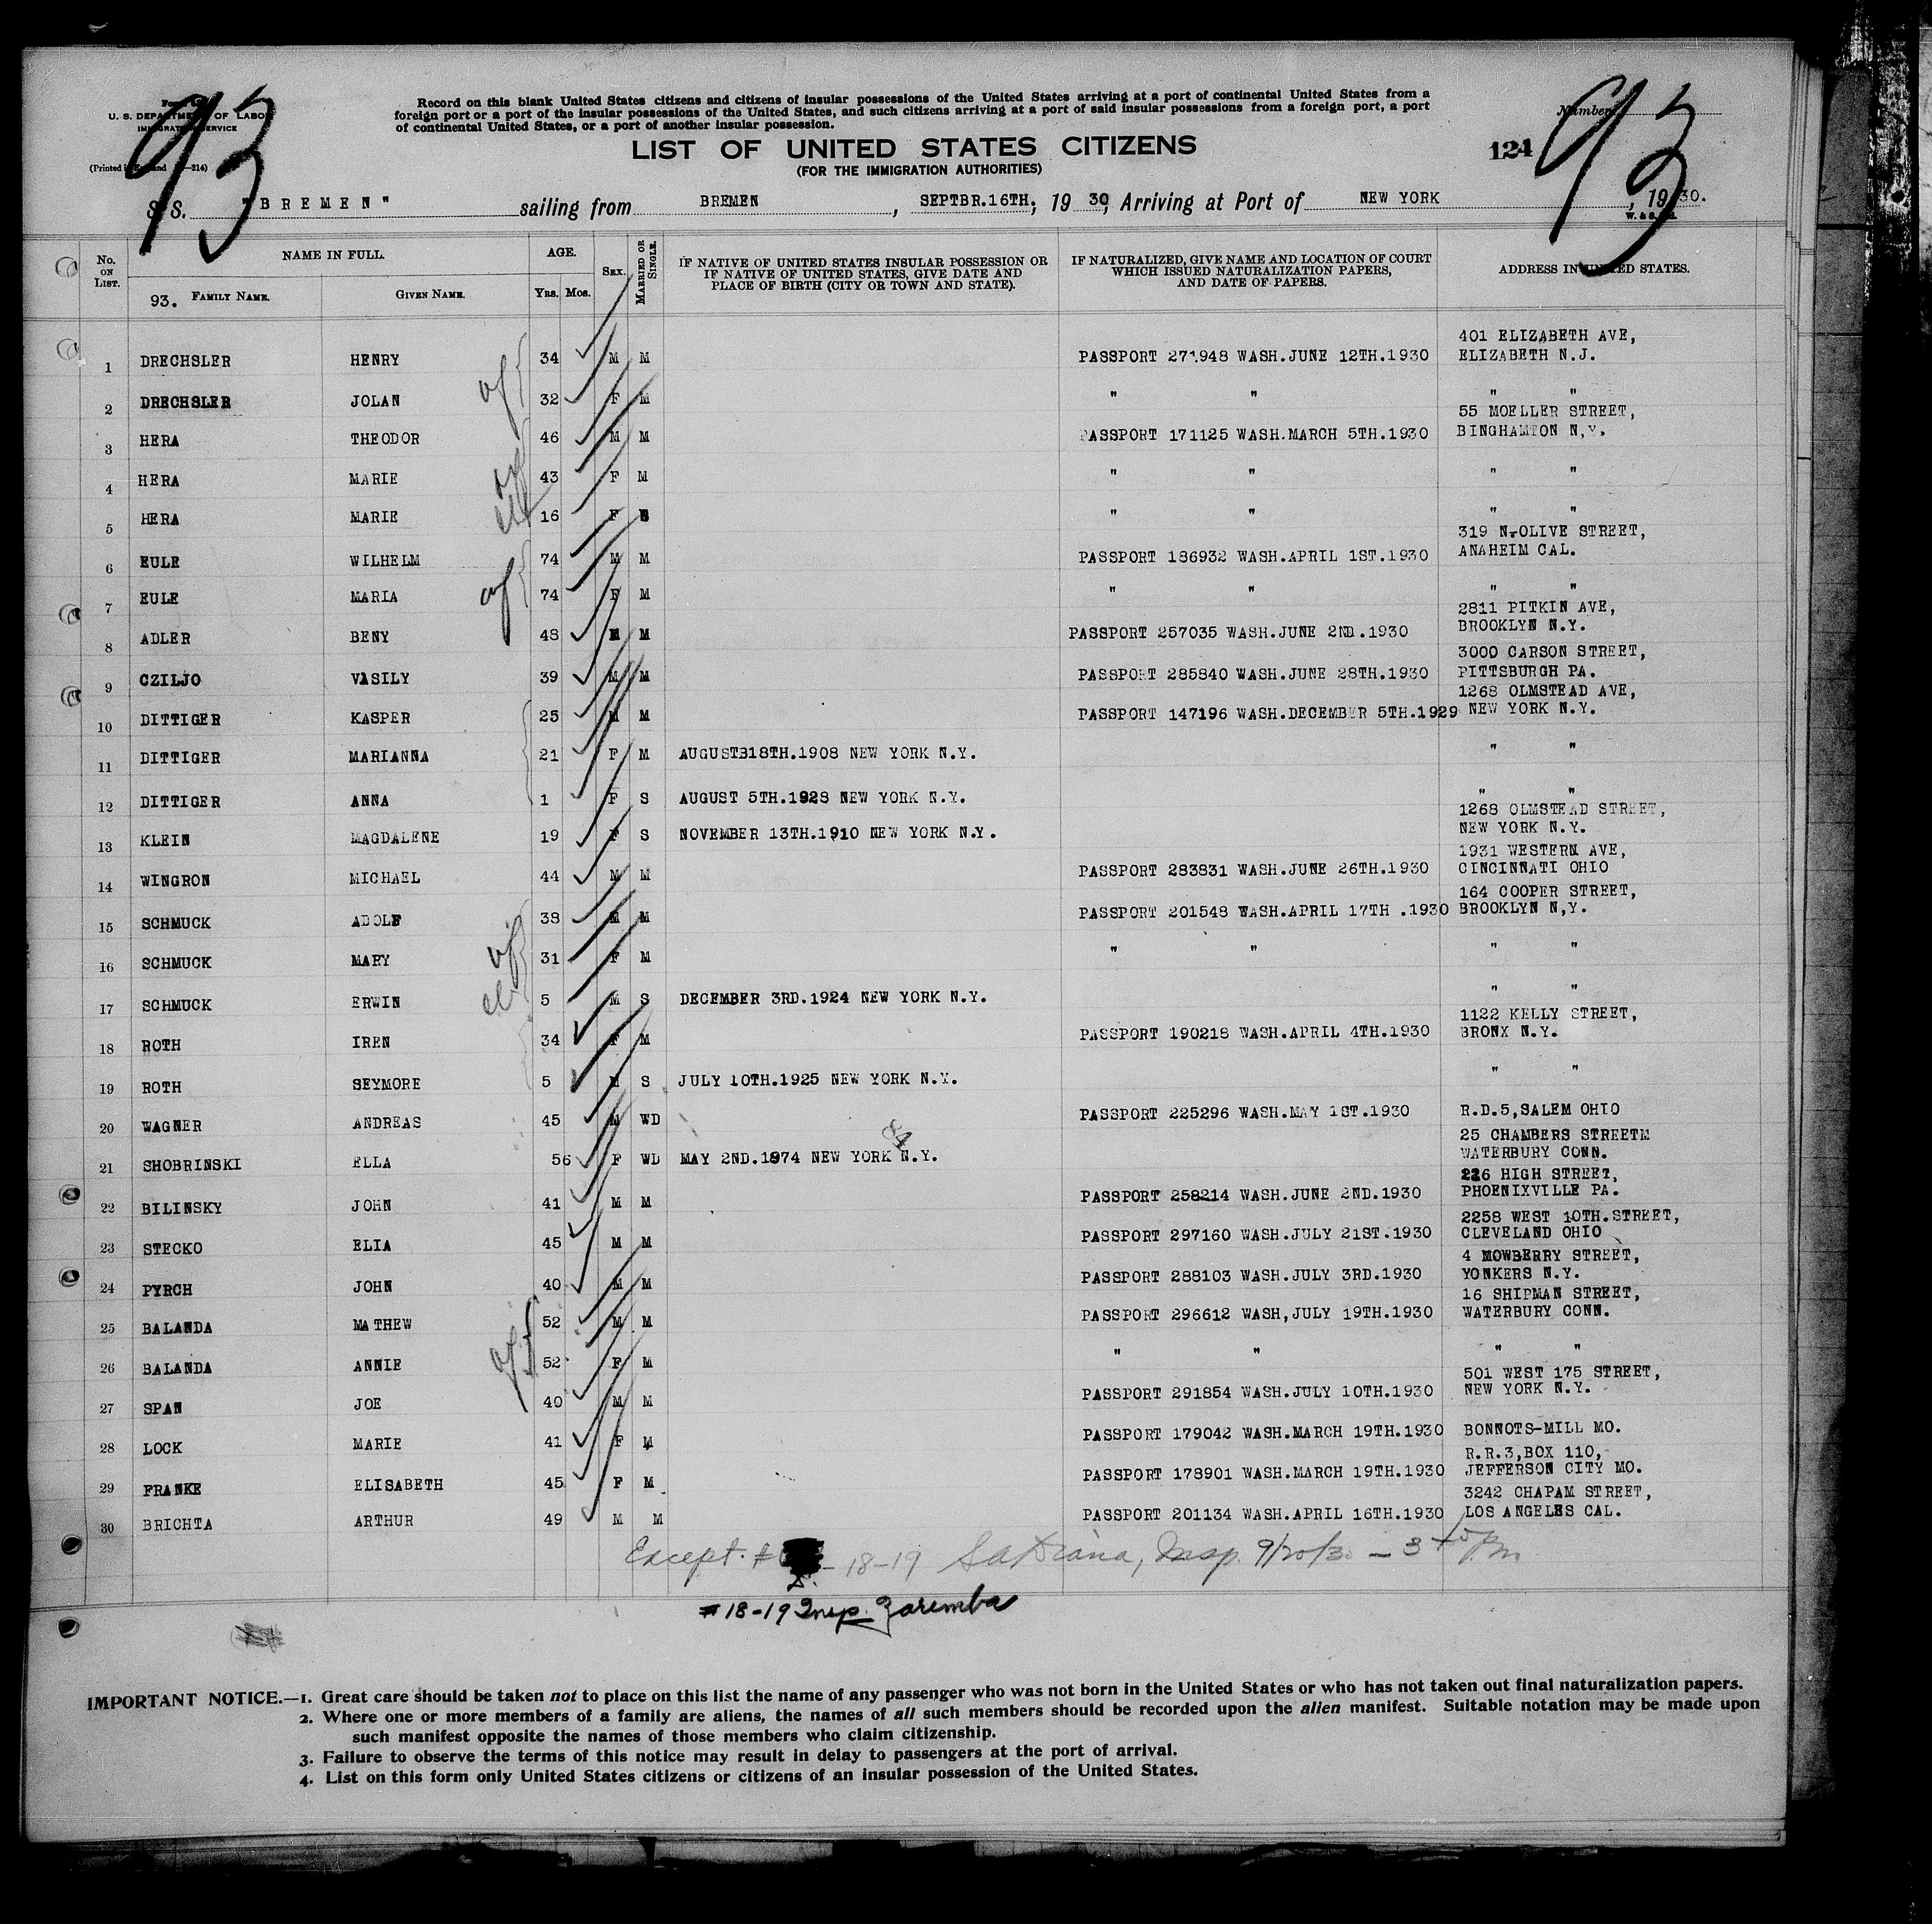 93
93
Form
U. S. DEPARTMENT OF LABOR
IMMIGRATION SERVICE
Record on this blank United States citizens and citizens of insular possessions of the United States arriving at a port of continental United States from a
foreign port or a port of the insular possessions of the United States, and such citizens arriving at a port of said insular possessions from a foreign port, a port
of continental United States, or a port of another insular possession.
Number
LIST OF UNITED STATES CITIZENS
124
(FOR THE IMMIGRATION AUTHORITIES)
S.S. "BREMEN" sailing from BREMEN, SEPTBR.16TH; 19 30, Arriving at Port of NEW YORK, 1930.
No. ON LIST.
NAME IN FULL.
93. FAMILY NAME. GIVEN NAME.
AGE. YRS. MOS.
SEX.
MARRIED OR SINGLE.
IF NATIVE OF UNITED STATES INSULAR POSSESSION OR
IF NATIVE OF UNITED STATES, GIVE DATE AND
PLACE OF BIRTH (CITY OR TOWN AND STATE).
IF NATURALIZED, GIVE NAME AND LOCATION OF COURT
WHICH ISSUED NATURALIZATION PAPERS,
AND DATE OF PAPERS.
ADDRESS IN UNITED STATES.
401 ELIZABETH AVE,
1 DRECHSLER HENRY 34 M M PASSPORT 271948 WASH.JUNE 12TH.1930 ELIZABETH N.J.
2 DRECHSLER JOLAN 32 F M " " " "
55 MOELLER STREET,
3 HERA THEODOR 46 M M PASSPORT 171125 WASH.MARCH 5TH.1930 BINGHAMTON N,Y.
4 HERA MARIE 43 F M " " " "
5 HERA MARIE 16 F S " " " "
319 N.OLIVE STREET,
6 EULE WILHELM 74 M M PASSPORT 186932 WASH.APRIL 1ST.1930 ANAHEIM CAL.
7 EULE MARIA 74 F M " " " "
2811 PITKIN AVE,
8 ADLER BENY 48 M M PASSPORT 257035 WASH.JUNE 2ND.1930 BROOKLYN N.Y.
3000 CARSON STREET,
9 CZILJO VASILY 39 M M PASSPORT 285840 WASH.JUNE 28TH.1930 PITTSBURGH PA.
1268 OLMSTEAD AVE,
10 DITTIGER KASPER 25 M M PASSPORT 147196 WASH.DECEMBER 5TH.1929 NEW YORK N.Y.
11 DITTIGER MARIANNA 21 F M AUGUSTB18TH.1908 NEW YORK N.Y. " "
12 DITTIGER ANNA 1 F S AUGUST 5TH.1928 NEW YORK N.Y. " "
1268 OLMSTEAD STREET,
13 KLEIN MAGDALENE 19 F S NOVEMBER 13TH.1910 NEW YORK N.Y. NEW YORK N.Y.
1931 WESTERN AVE,
14 WINGRON MICHAEL 44 M M PASSPORT 283831 WASH.JUNE 26TH.1930 CINCINNATI OHIO
164 COOPER STREET,
15 SCHMUCK ADOLF 38 M M PASSPORT 201548 WASH.APRIL 17TH .1930 BROOKLYN N,Y.
16 SCHMUCK MARY 31 F M " " " "
17 SCHMUCK ERWIN 5 M S DECEMBER 3RD.1924 NEW YORK N.Y. " "
1122 KELLY STREET,
18 ROTH IREN 34 F M PASSPORT 190218 WASH.APRIL 4TH.1930 BRONX N.Y.
19 ROTH SEYMORE 5 M S JULY 10TH.1925 NEW YORK N.Y. " "
20 WAGNER ANDREAS 45 M WD PASSPORT 225296 WASH.MAY 1ST.1930 R.D.5,SALEM OHIO
25 CHAMBERS STREETM
21 SHOBRINSKI ELLA 56 F WD MAY 2ND.1874 NEW YORK N.Y. WATERBURY CONN.
226 HIGH STREET,
22 BILINSKY JOHN 41 M M PASSPORT 258214 WASH.JUNE 2ND.1930 PHOENIXVILLE PA.
2258 WEST 10TH.STREET,
23 STECKO ELIA 45 M M PASSPORT 297160 WASH.JULY 21ST.1930 CLEVELAND OHIO
4 MOWBERRY STREET,
24 PYRCH JOHN 40 M M PASSPORT 288103 WASH.JULY 3RD.1930 YONKERS N.Y.
16 SHIPMAN STREET,
25 BALANDA MATHEW 52 M M PASSPORT 296612 WASH,JULY 19TH.1930 WATERBURY CONN.
26 BALANDA ANNIE 52 F M " " " "
501 WEST 175 STREET,
27 SPAN JOE 40 M M PASSPORT 291854 WASH.JULY 10TH.1930 NEW YORK N.Y.
28 LOCK MARIE 41 F M PASSPORT 179042 WASH.MARCH 19TH.1930 BONNOTS-MILL MO.
R.R.3,BOX 110,
29 FRANKE ELISABETH 45 F M PASSPORT 178901 WASH.MARCH 19TH.1930 JEFFERSON CITY MO.
3242 CHAPAM STREET,
30 BRICHTA ARTHUR 49 M M PASSPORT 201134 WASH.APRIL 16TH.1930 LOS ANGELES CAL.
Except # 18-19 Insp. 9/20/30
#18-19 Insp. Zaremba
IMPORTANT NOTICE.—1. Great care should be taken not to place on this list the name of any passenger who was not born in the United States or who has not taken out final naturalization papers.
2. Where one or more members of a family are aliens, the names of all such members should be recorded upon the alien manifest. Suitable notation may be made upon
such manifest opposite the names of those members who claim citizenship.
3. Failure to observe the terms of this notice may result in delay to passengers at the port of arrival.
4. List on this form only United States citizens or citizens of an insular possession of the United States.